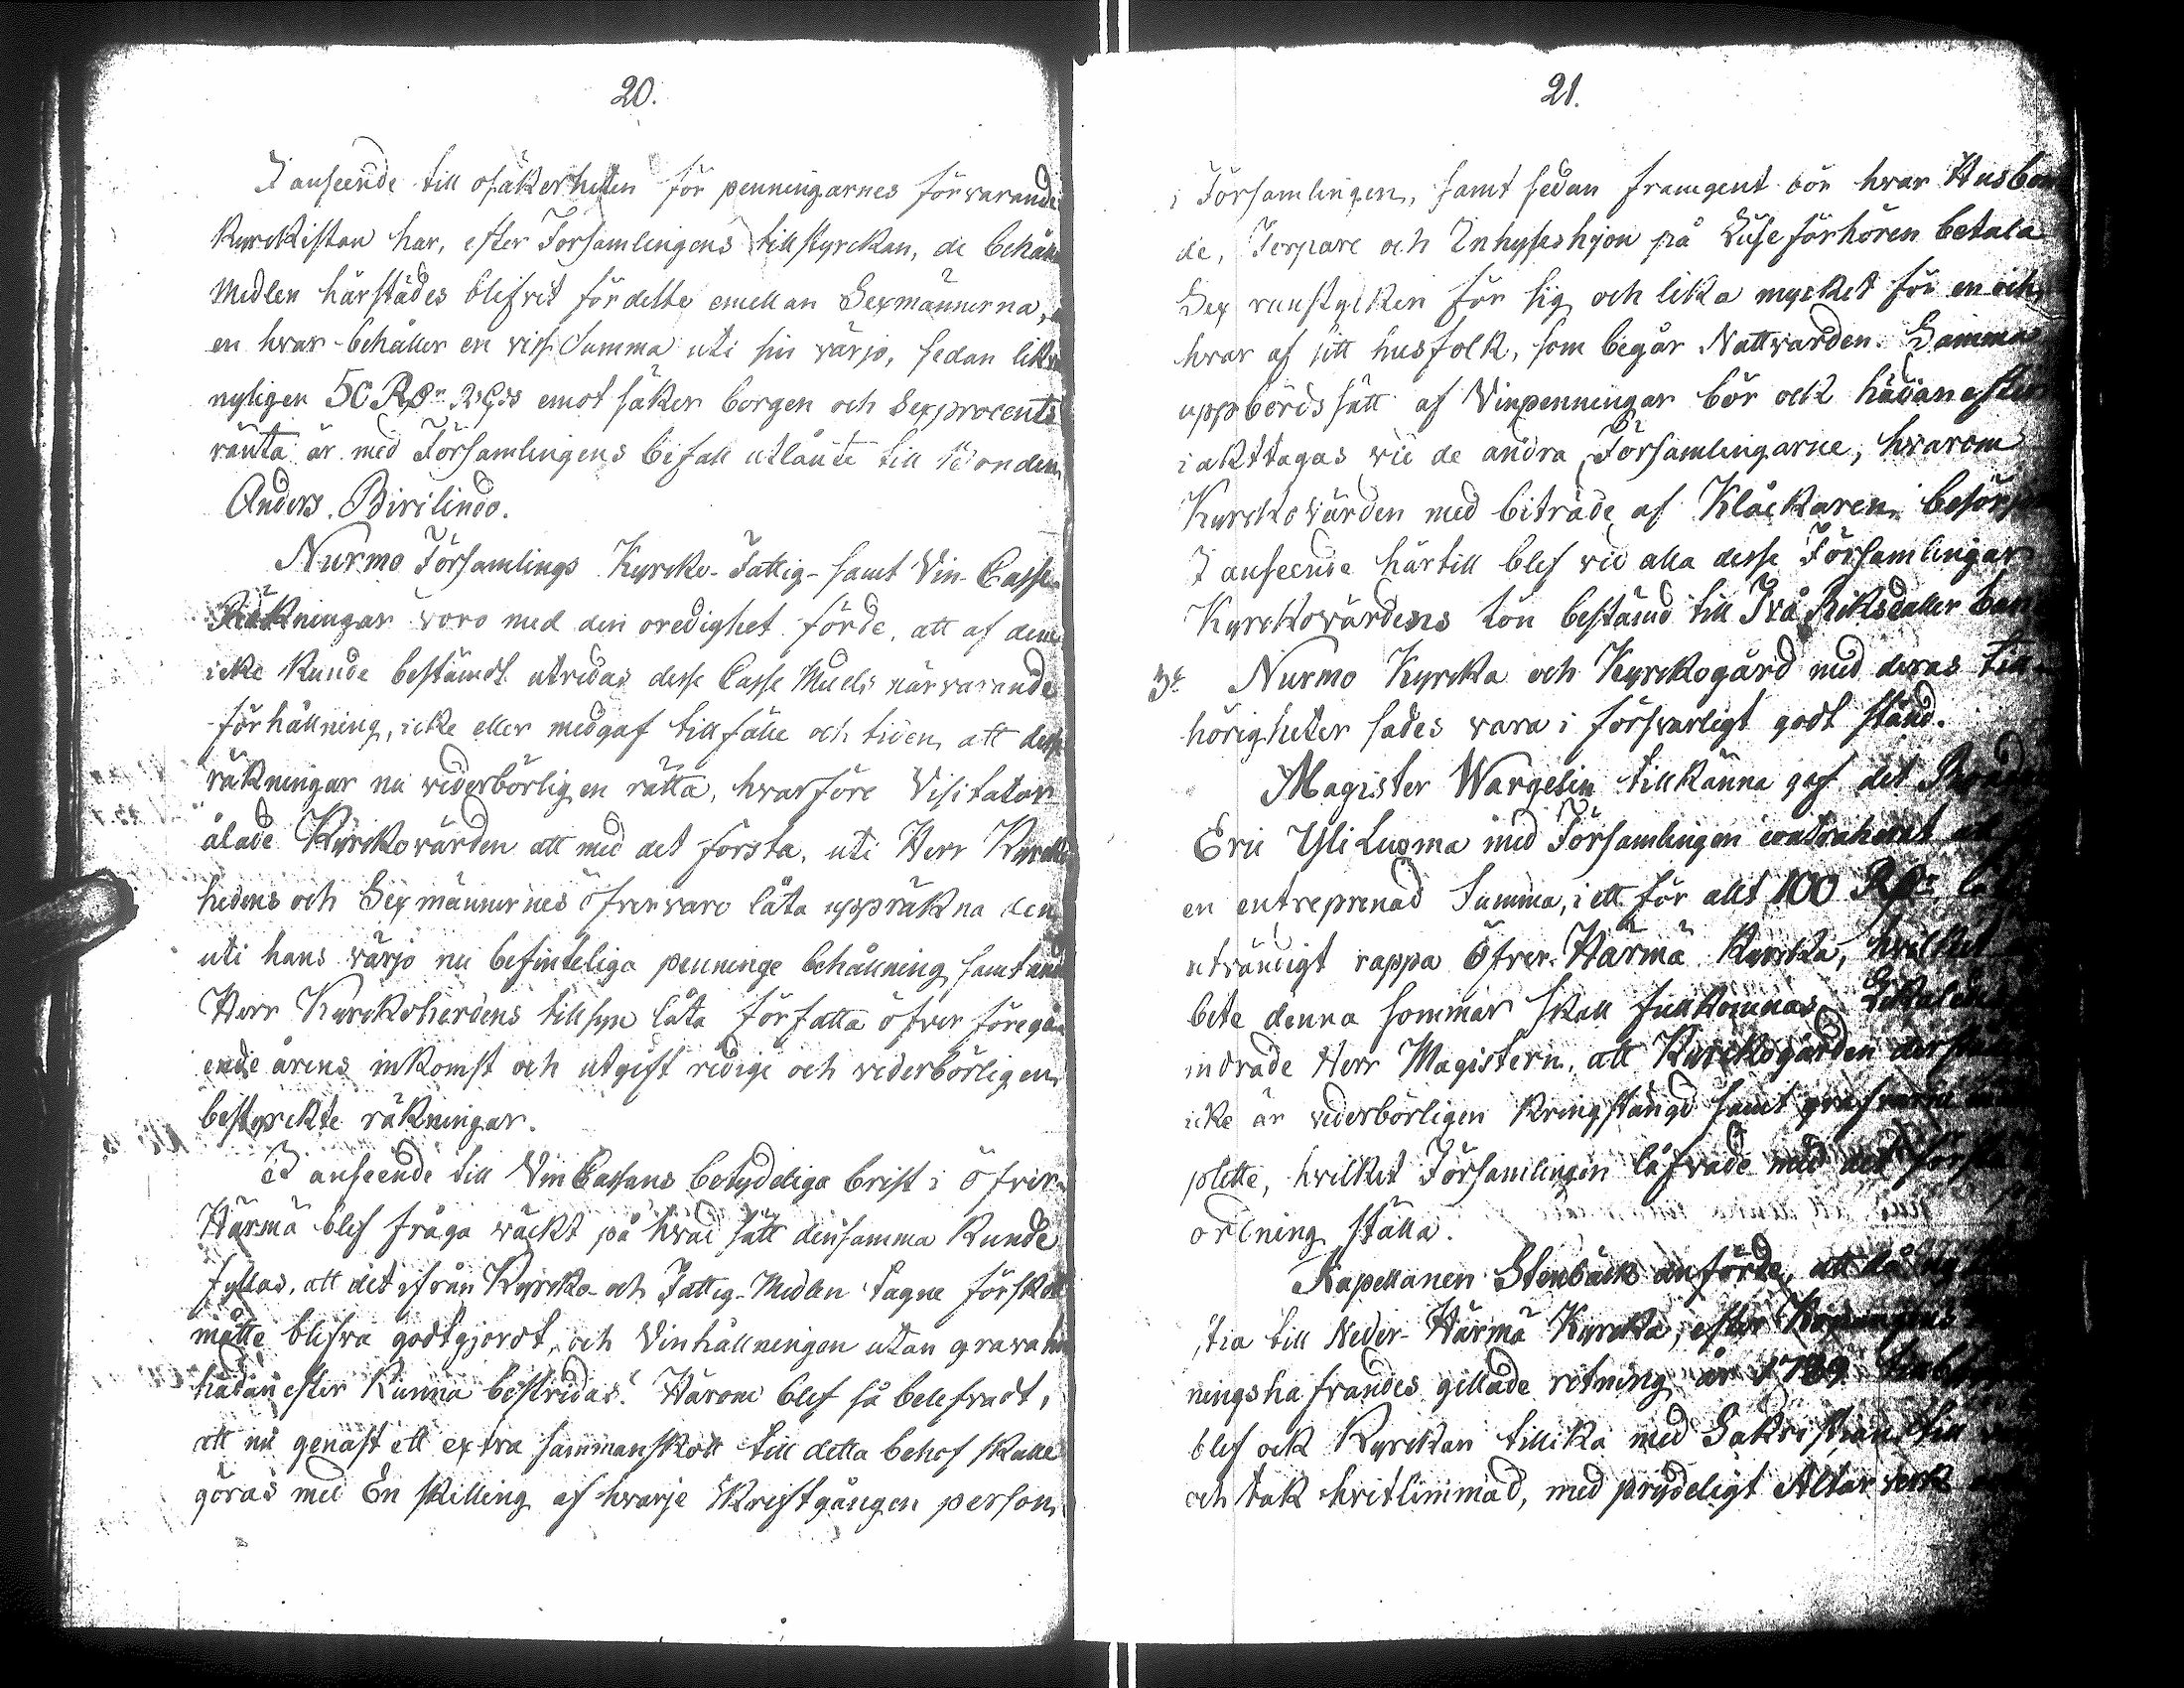 20.
I anseende till osäkerheten för penningarnes förvarande
Kyrckistan har, efter Församlingens tillstyrckan, de behåll
Medlen härstädes blifvit fördelte emellan Sexmännerna,
en hvar behåller en viss Summa uti sin värjo, sedan likv
nyligen 50 Rdr emot säker borgen och Sexprocents
ränta är med Församlingens bifall utlänte till Bonden
Anders Birilindo.
Nurmo Församlings Kyrcko- Fattig- samt Vin-Casse
Räkningar voro med den oredighet förde, att af dem
icke kunde bestämdt utredas desse Casse Medels närvarande
förhållning, icke eller medgaf tillfälle och tiden att desse
räkningar nu vederbörligen rätta, hvarföre Visitator
ålade Kyrckovärden att med det första, uti Herr Kyrcko
hedens och Sexmännernes öfvervaro låta uppräkna den
uti hans värjo nu befinteliga penninge behållning samt under
Herr Kyrckoherdens tillsyn låta författa öfver föregå
ende årens inkomst och utgift redige och vederbörligen
bestyrckte räkningar.
I anseende till Vin Cassans betydeliga brist i Öfver
Härmä blef fråga väckt på hvad sätt densamma kunde
fyllas, att det ifrån Kyrcko- och Fattig-Medlen tagne förskott
måtte blifva godtgjordt, och Vinhållningen utan gravation
hädanefter kunna bestridas? Härom blef så belefvadt,
att nu genast ett extra sammanskott till detta behof skulle
göras med En skilling af hvarje Skriftgången person
21.
i Församlingen, samt sedan framgent bör hvar Husbon
de, Torpare och Inhyseshjon på Läseförhören betala
Sex runstycken för sig och lika mycket för en och
hvar af sitt husfolk, som begår Nattvarden. Samma
uppbördssätt af Vinpenningar bör ock hädanefter
iakttagas vid de andra Församlingarne, hvarom
Kyrckovärden med biträde af Klåckaren besörjer
I anseende härtill blef vid alla desse Församlingar
Kyrckovärdens lön bestämd till Två Riksdaller ban
3° Nurmo Kyrcka och Kyrckogård med deras till
hörigheter sades vara i försvarligt godt stånd.
Magister Wargelin tillkänna gaf det Bonden
Eric Yli Luoma med Församlingen contraherat att
en entreprenad Summa, i ett för allt 100 Rdr
utvändigt rappa Öfver-Härmä Kyrcka, hvilket
bete denna sommar skall fullkomnas.
indrade Herr Magistern, att Kyrckogården
icke är vederbörligen kringstängd samt
plette, hvilket Församlingen låfvade med det förs
ordning ställa.
Kapellanen Stenbäck anförde, att
tia till Neder-Härmä Kyrcka, efter
ningshafvandes gillade ritning år 1789
blef ock Kyrckan tillika med Sakristian till
och tak hvitlimmad, med prydeligt Altarverk